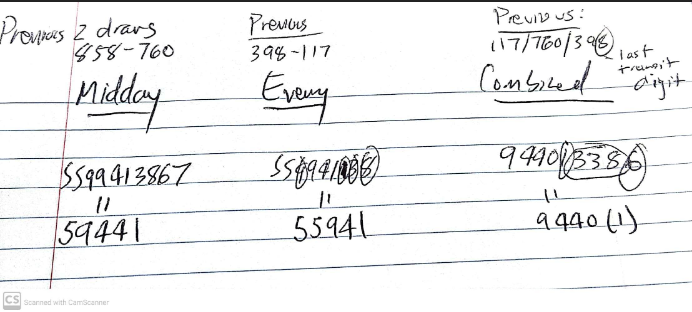 Previous 2 draws
858-760
Midday
5599413867
11
59441
Previous
398-117
Eveny
11
55941
Previous:
117/760/398
last
transit
digit
Combined
94401 338 6
11
9440 (1)
CS Scanned with CamScanner